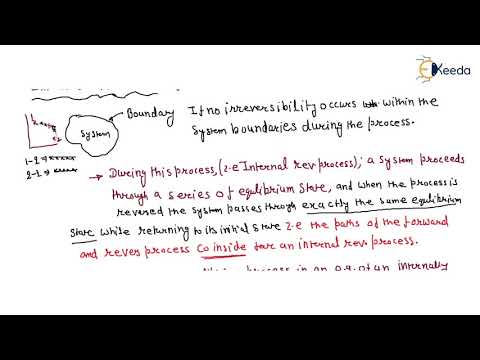 Keeda
Boundary
System
1-2 ⇒ xxxxx
2-1 ⇒ xxxxx
If no irreversibility occurs within the
System boundaries during the process.
→ During this process, (i.e Internal rev process); a system proceeds
through a series of equilibrium state, and when the process is
revered the system passes through exactly the same equilibrium
state while returning to its initial state i.e the paths of the forward
and revers process Co inside for an internal rev process.
process is an e.g. of an internally